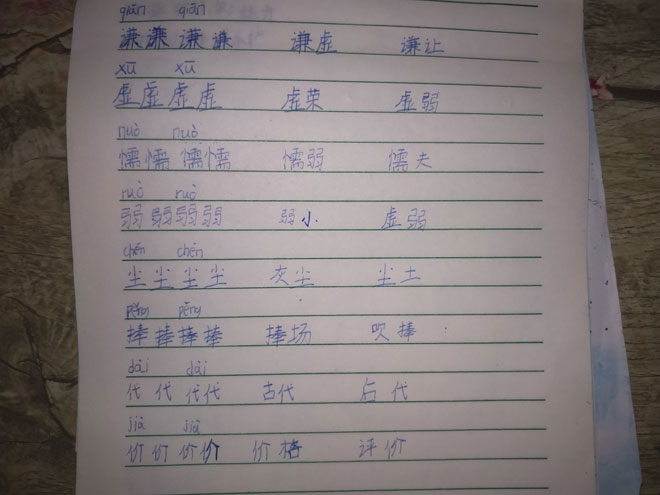 qiān qiān
谦谦谦谦 谦虚 谦让
xū xū
虚虚虚虚 虚荣 虚弱
nuò nuò
懦懦懦懦 懦弱 懦夫
ruò ruò
弱弱弱弱 弱小. 虚弱
chén chén
尘尘尘尘 灰尘 尘土
pěng pěng
捧捧捧捧 捧场 吹捧
dài dài
代代代代 古代 后代
jià jià
价价价价 价格 评价